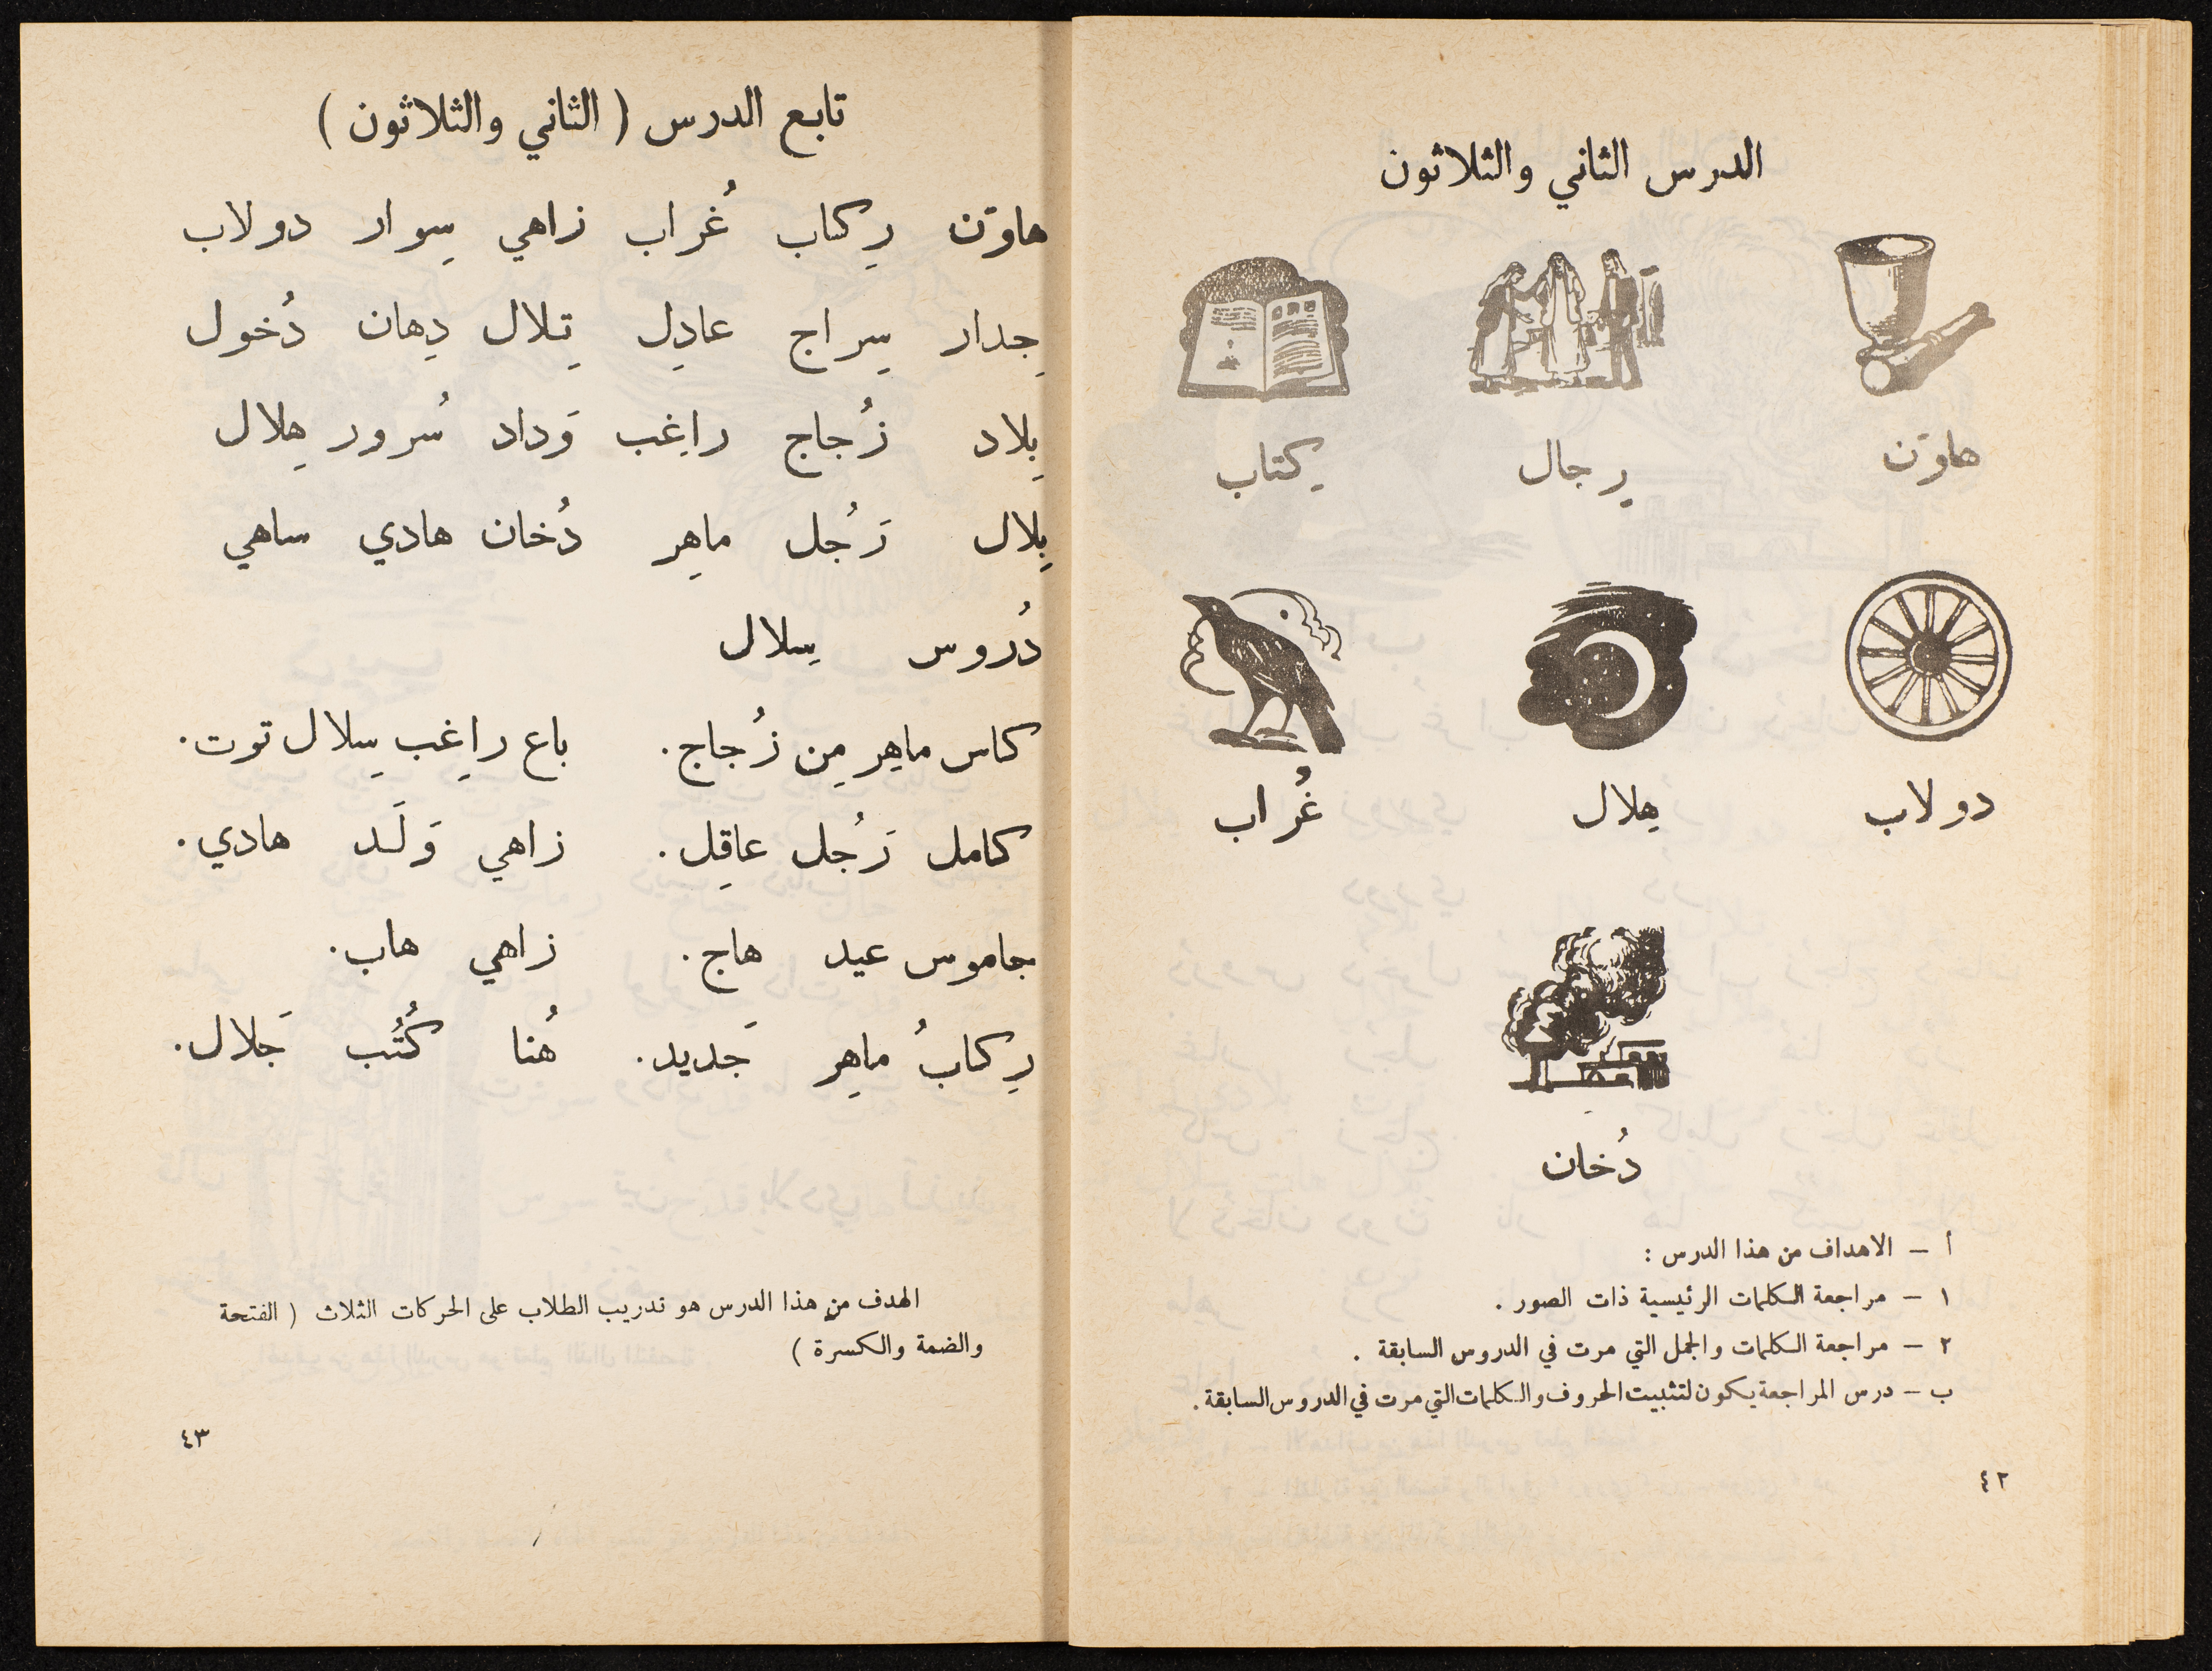 الدرس الثاني والثلاثون
هاوَن رِجال كِتاب
دولاب هِلال غُراب
دُخان
أ – الاهداف من هذا الدرس :
١ – مراجعة الكلمات الرئيسية ذات الصور .
٢ – مراجعة الكلمات والجمل التي مرت في الدروس السابقة .
ب – درس المراجعة يكون لتثبيت الحروف والكلمات التي مرت في الدروس السابقة .
٤٢
تابع الدرس ( الثاني والثلاثون )
هاوَن رِكاب غُراب زاهي سِوار دولاب
جِدار سِراج عادِل تِلال دِهان دُخول
بِلاد زُجاج راغِب وَداد سُرور هِلال
بِلال رَجُل ماهِر دُخان هادي ساهي
دُروس سِلال
كاس ماهِر مِن زُجاج. باع راغِب سِلال توت.
كامل رَجُل عاقِل. زاهي وَلَد هادي.
جاموس عيد هاج. زاهي هاب.
رِكابُ ماهِر جَديد. هُنا كُتُب جَلال.
الهدف من هذا الدرس هو تدريب الطلاب على الحركات الثلاث ( الفتحة
والضمة والكسرة )
٤٣